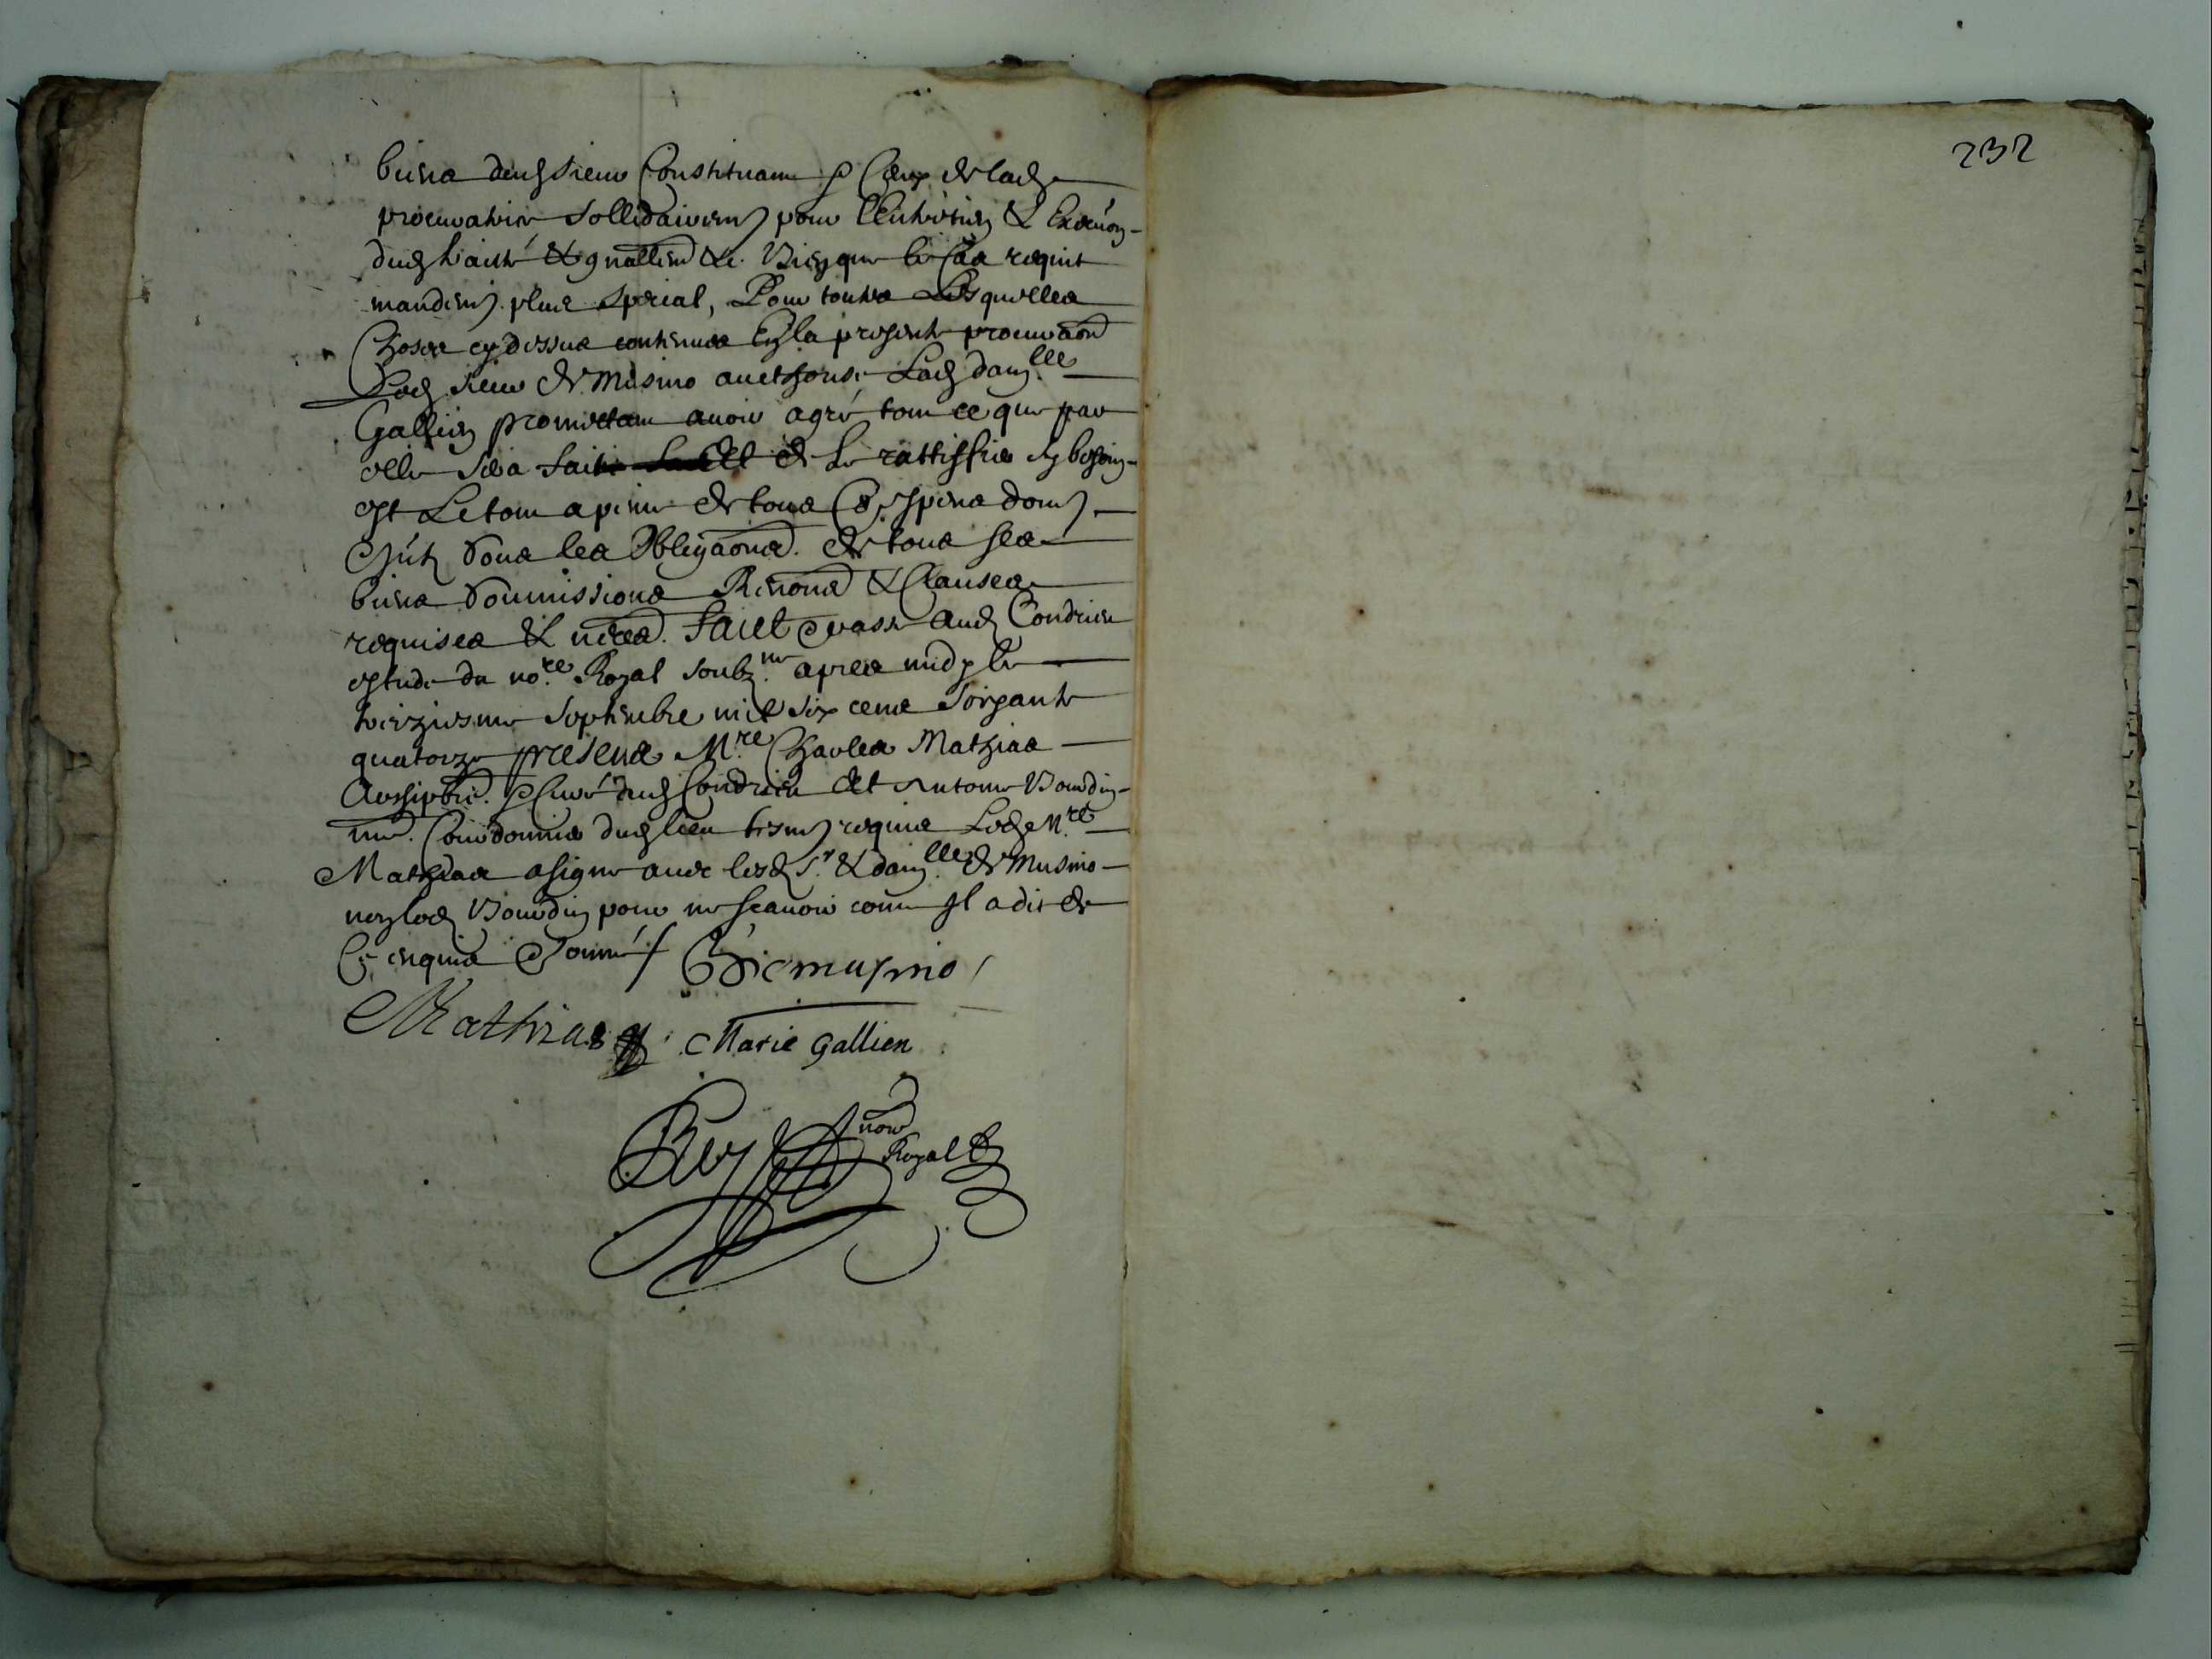 232
biens dud sieur Constituant & Ceux de lad
procuratrice sollidairem pour lentretien & Execuon
dud traitté & gnallem &c. Bien que le Cas requit
mandem plus special, Pour toutes Lesquelles
Choses cydessus contenues En la presente procuraon
Led sieur de Musino aucthorise Lad dam.lle
Gallien promettant auoir agré tout ce que par
elle sera fait et le rattiffier sy besoin
est Le tout a peine de tous despens dom
soubz les Obligaons de tous ses
biens soumissions Renons & Clauses
requises & necres. Faict & passé aud Condrieu
estude du no.re Royal soubz.né apres midy le
treiziesme septembre mil six cens soixante
quatorze presens M.re Charles Mathias
pbre & Curé dud Condrieu et Antoine Bourdin
me. Courdonnier dud lieu tesm requis Led M.re
Mathias a signé auec lesd S.r & dam.lle de Musino
non led Bourdin pour ne scauoir comme Il a dit de
Ce enquis & sommé /
Demusino
Mathias
Marie Gallien
Rey nore
Royal